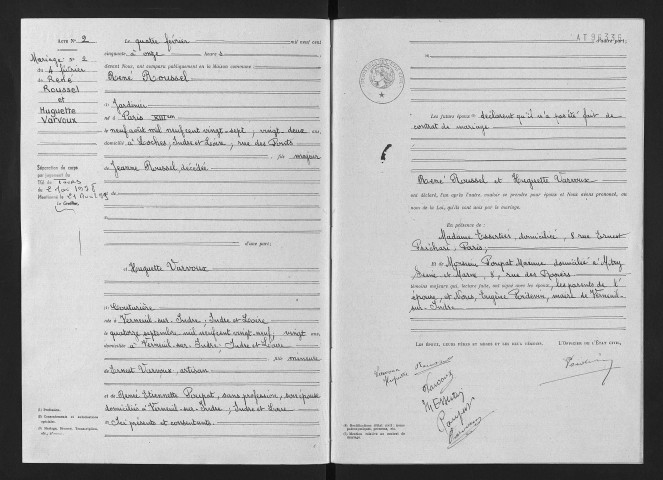 ACTE N° 2
Mariage N° 2
du 4 février
de René
Roussel
et
Huguette
Varvoux
Séparation de corps
par jugement du
Tours
Le quatre février mil neuf cent
cinquante, à onze heures
devant Nous, ont comparu publiquement en la Maison commune :
René Roussel
(1) Jardinier
né à Paris
le neuf août mil neuf cent vingt-sept, vingt-deux ans,
domicilié à Loches, Indre et Loire, rue des Ponts
fils majeur
de
Jeanne Roussel décédée
d'une part;
et Huguette Varvoux
(1) Couturière
née à Verneuil-sur-Indre, Indre et Loire
le quatorze septembre mil neuf cent vingt-neuf, vingt ans,
domiciliée à Verneuil-sur-Indre, Indre et Loire
fille mineure
de Ernest Varvoux, artisan
et de Renée Etiennette Poupat, sans profession, son épouse
domiciliés à Verneuil-sur-Indre, Indre et Loire
Ici présents et consentants.
(1) Profession.
d'autre part;
Les futurs époux déclarent qu'il n'a pas été fait de
contrat de mariage
René Roussel et Huguette Varvoux
ont déclaré, l'un après l'autre, vouloir se prendre pour époux et Nous avons prononcé, au
nom de la Loi, qu'ils sont unis par le mariage.
En présence de :
Madame Essertier, domiciliée, 8 rue Ernest
Psichari, Paris,
Et de Monsieur Poupat Maxime domicilié à Mitry
Seine et Marne, 8, rue des Rosiers
témoins majeurs qui, lecture faite, ont signé avec les époux, les parents de l'
épouse, et Nous, maire de Verneuil
sur-Indre
LES ÉPOUX, LEURS PÈRES ET MÈRES ET LES DEUX TÉMOINS,
L'OFFICIER DE L'ÉTAT CIVIL,
Varvoux
Huguette
Roussel
Varvoux
Poupat